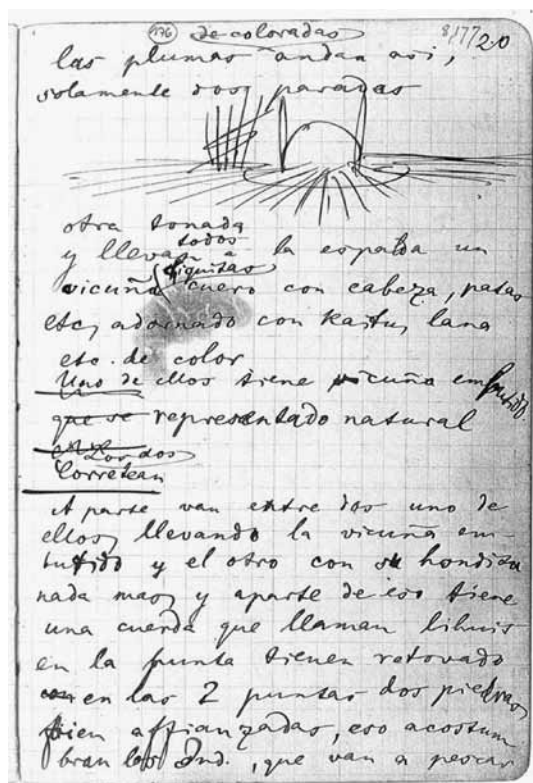 176 de coloradas 8/17/20
las plumas andan asi,
solamente dos paradas
otra tonada
y llevan todos a la espalda un
vicuña (siquitas) cuero con cabeza, patas
etc, adornado con kaitu, lana
etc. de color
Uno de ellos tiene vicuña embutido.
que se representado natural
Los dos
Corretean
A parte van entre dos uno de
ellos, llevando la vicuña em-
butido y el otro con su hondita
nada mas, y aparte de eso tiene
una cuerda que llaman lihuis
en la punta tienen retovado
en las 2 puntas dos piedras
bien affianzadas, eso acostum
bran los Ind., que van a pescar